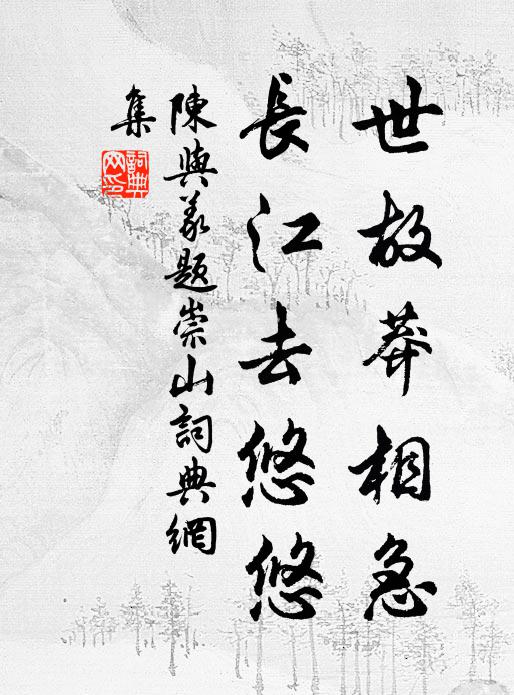 世故莽相急
長江去悠悠
陳與義題崇山詞典網
集
詞典網印